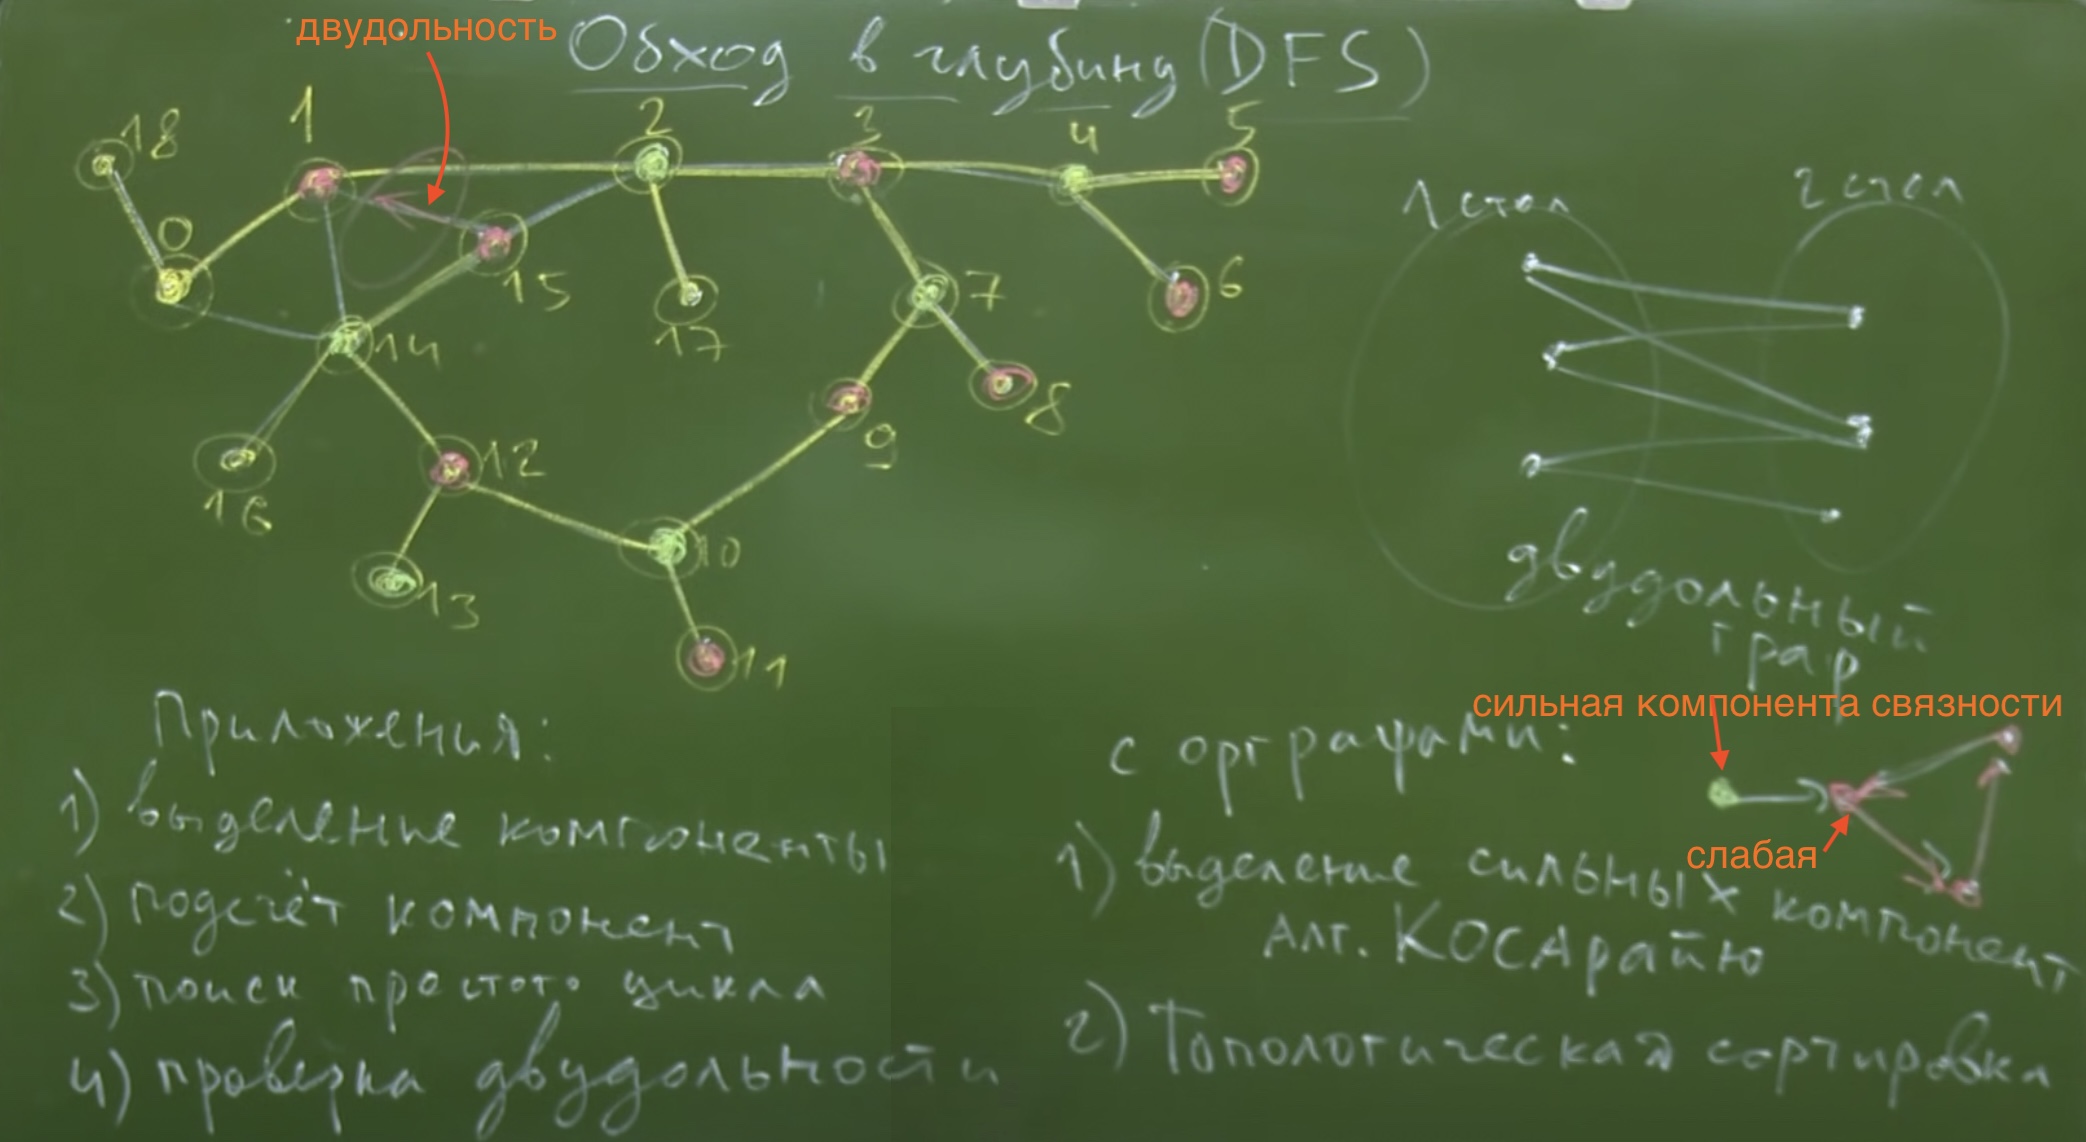 двудольность
Обход в глубину (DFS)
18
1
2
3
4
5
0
15
17
7
6
14
8
9
12
16
10
13
11
1 стол
2 стол
двудольный
граф
Приложения:
1) выделение компоненты
2) подсчёт компонент
3) поиск простого цикла
4) проверка двудольности
сильная компонента связности
с орграфами:
слабая
1) выделение сильных компонент
Алг. Косарайю
2) Топологическая сортировка